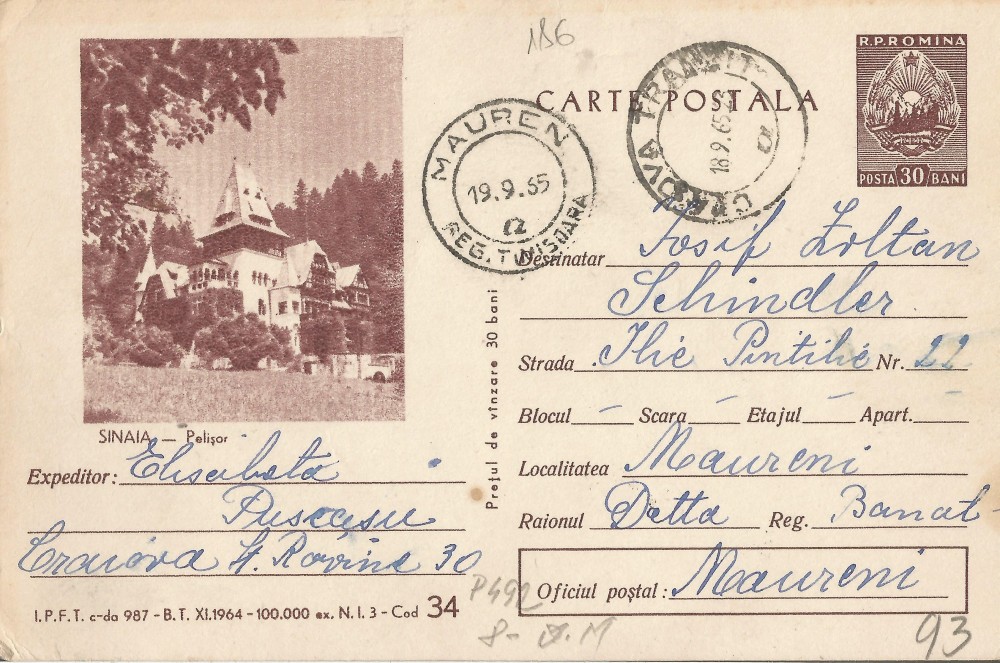 186
R.P.ROMINA
CARTE POSTALA
POSTA 30 BANI
CRAIOVA TRANZIT
18.9.65
MAUREN
19.9.65
REG. TIMISOARA
Destinatar Iosif Zoltan
Schindler
Strada Ilie Pintilie Nr. 22
Blocul — Scara — Etajul — Apart.
Localitatea Maureni
Raionul Detta Reg. Banat
Oficiul poștal: Maureni
Prețul de vînzare 30 bani
SINAIA — Pelișor
Expeditor: Elisabeta
Puscasu
Craiova St. Rovine 30
I.P.F.T. c-da 987 - B.T. XI.1964 - 100.000 ex. N.I. 3 - Cod 34
P492
93